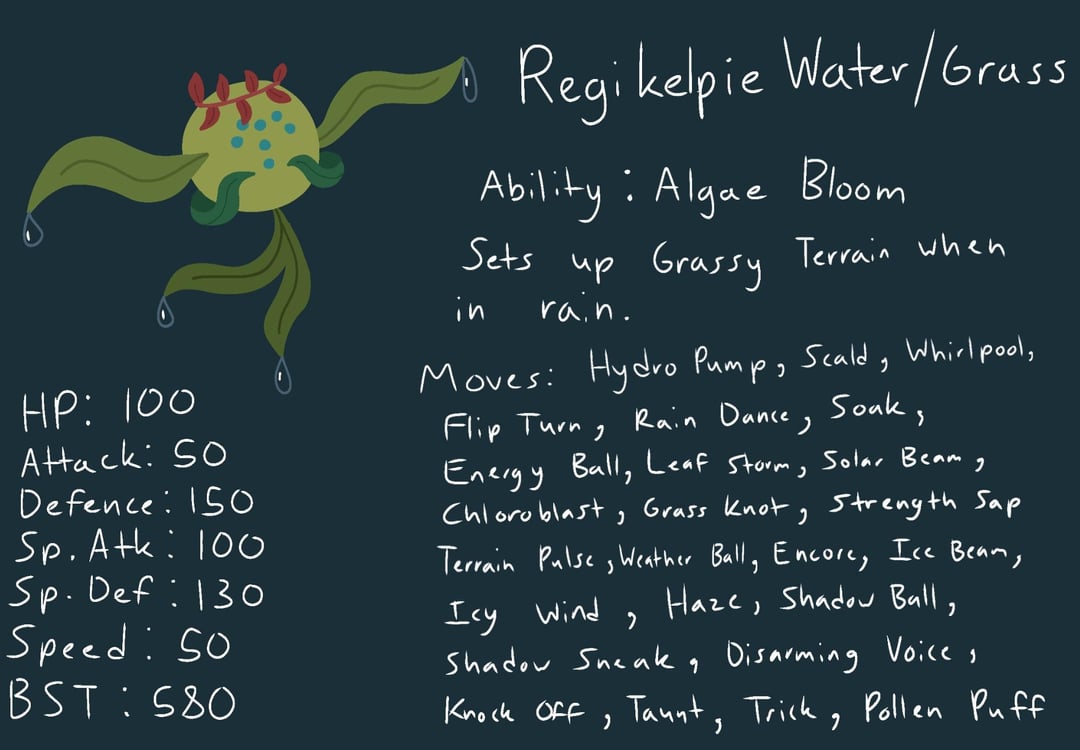 Regikelpie Water/Grass
Ability: Algae Bloom
Sets up Grassy Terrain when
in rain.
Moves: Hydro Pump, Scald, Whirlpool,
Flip Turn, Rain Dance, Soak,
Energy Ball, Leaf Storm, Solar Beam,
Chloroblast, Grass Knot, Strength Sap
Terrain Pulse, Weather Ball, Encore, Ice Beam,
Icy Wind, Haze, Shadow Ball,
Shadow Sneak, Disarming Voice,
Knock Off, Taunt, Trick, Pollen Puff
HP: 100
Attack: 50
Defence: 150
Sp. Atk: 100
Sp. Def: 130
Speed: 50
BST: 580